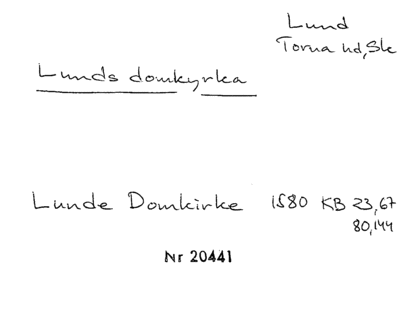 Lund
Torna hd, Sk
Lunds domkyrka
Lunde Domkirke 1580 KB 23,67
80,144
Nr 20441